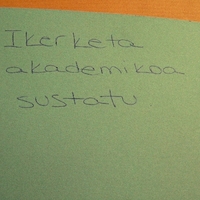 Ikerketa
akademikoa
sustatu